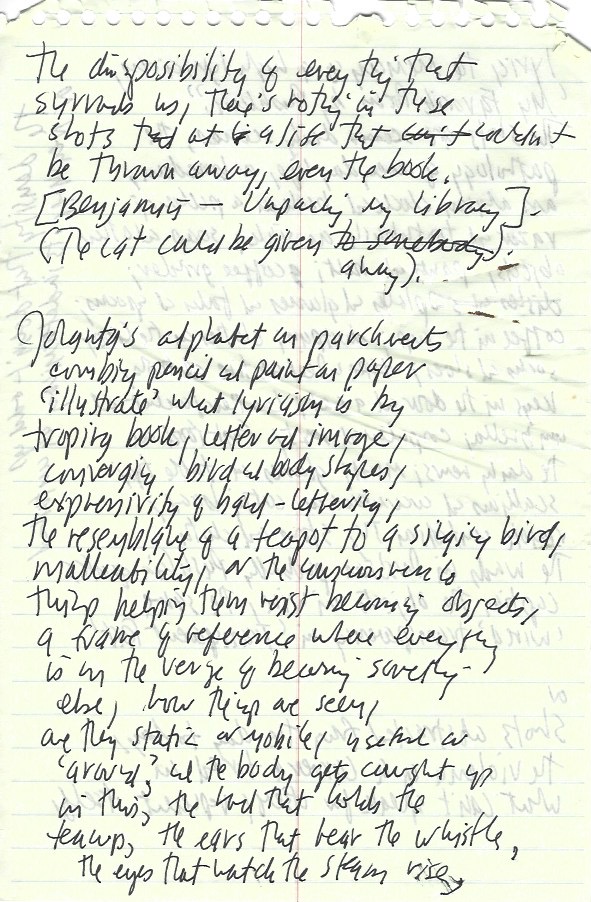 the disposibility of everything that
surrounds us, there's nothing in these
shots that at is a life that can't couldn't
be thrown away, even the book.
[Benjamin — Unpacking my Library].
(The cat could be given to somebody).
away).
Jolanta's alphabet on parchments
combining pencil and paint on paper
'illustrate' what lyricism is by
troping book, letter and image,
converging bird and body shapes,
expressivity of hand-lettering,
the resemblance of a teapot to a singing bird,
malleability, or the
things helping them resist becoming objects,
a frame of reference where everything
is on the verge of becoming something
else, how things are seen,
are they static or mobile, useful or
'around', and the body gets caught up
in this, the hand that holds the
teacup, the ears that hear the whistle,
the eyes that watch the steam rise,